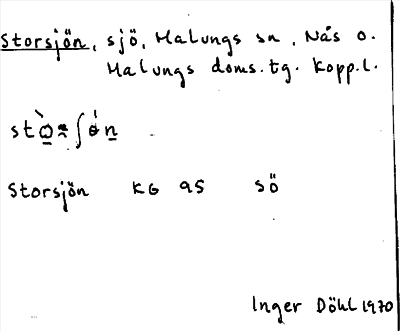 Storsjön, sjö, Malungs sn, Nås o.
Malungs doms.tg. Kopp.l.
Storsjön KG 95 sö
Inger Döhl 1970